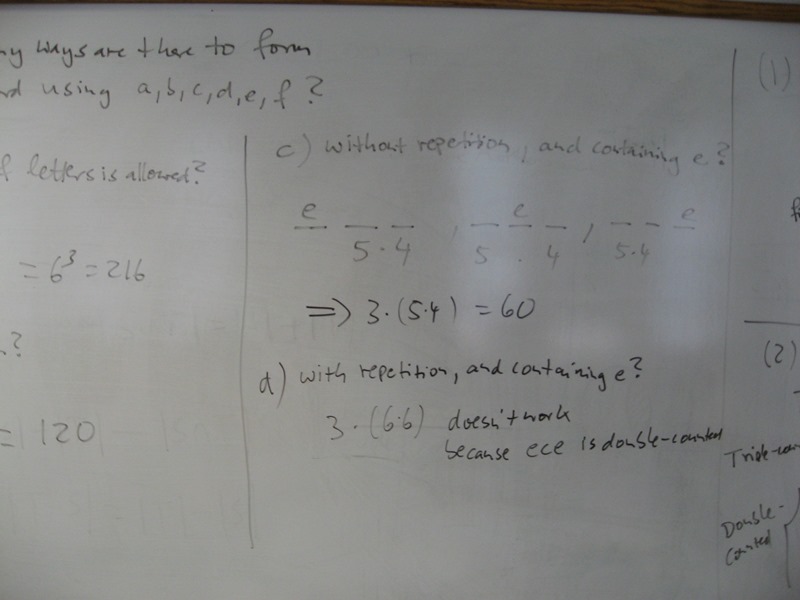 ny ways are there to form
rd using a, b, c, d, e, f ?
f letters is allowed?
= 6³ = 216
n.?
= 120
c) without repetition, and containing e?
e _ _ , _ e _ , _ _ e
5 · 4 5 . 4 5·4
⇒ 3·(5·4) = 60
d) with repetition, and containing e?
3·(6·6) doesn't work
because ece is double-counted
(1)
f
(2)
Triple-coun
Double-
counted